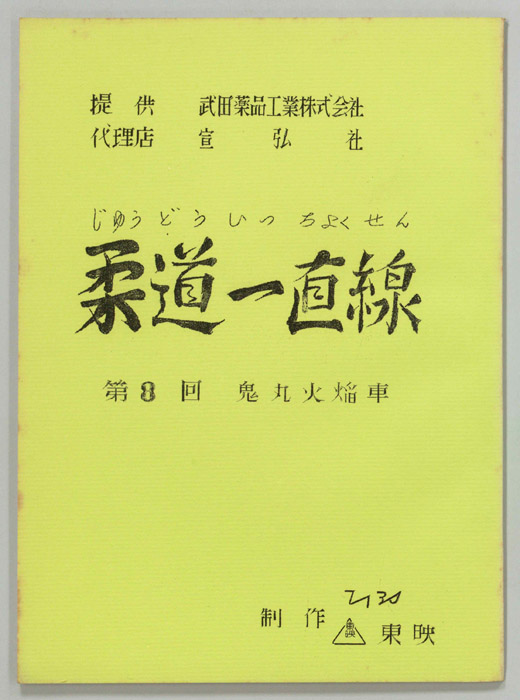 提供 武田薬品工業株式会社
代理店 宣弘社
じゅうどういっちょくせん
柔道一直線
第8回 鬼丸火焔車
制作 東映